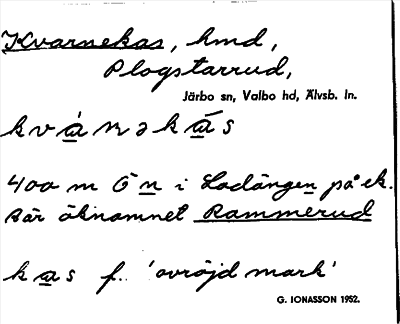 Kvarnekas, hmd,
Plogstarrud,
Järbo sn, Valbo hd, Älvsb. ln.
kvánəkás
400 m Ö n i Ladängen på ek.
Bär öknamnet Rammerud
kas f. 'oröjd mark'
G. IONASSON 1952.